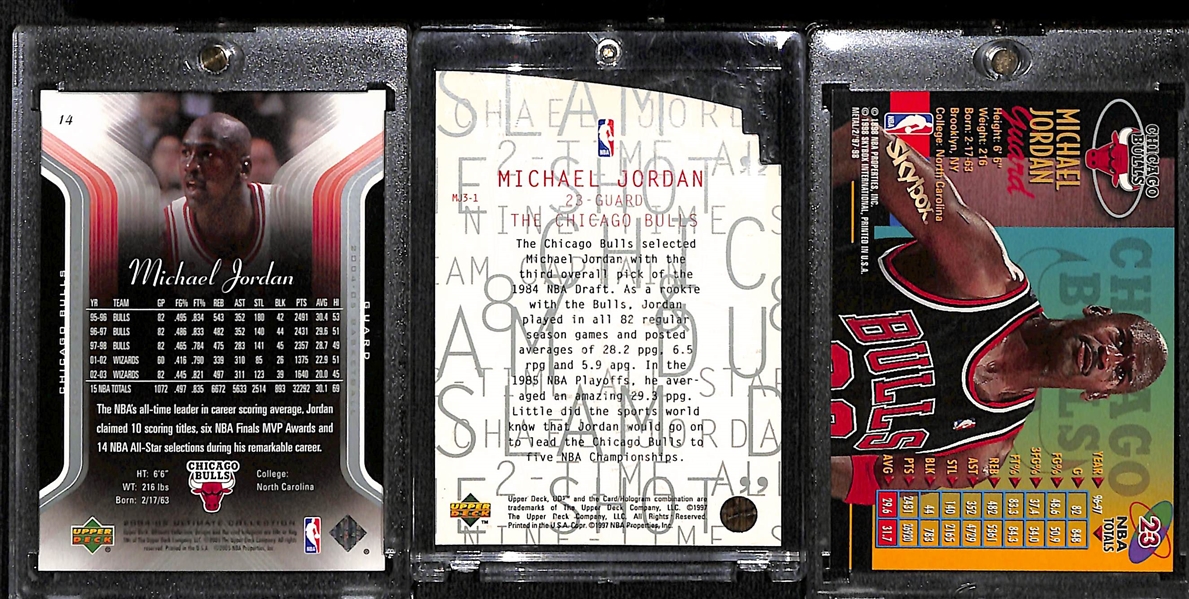 14
Michael Jordan
CHICAGO BULLS
GUARD
2004-05 BASKETBALL
YR TEAM GP FG% FT% REB AST STL BLK PTS AVG HI
95-96 BULLS 82 .495 .834 543 352 180 42 2491 30.4 53
96-97 BULLS 82 .486 .833 482 352 140 44 2431 29.6 51
97-98 BULLS 82 .465 .784 475 283 141 45 2357 28.7 49
01-02 WIZARDS 60 .416 .790 339 310 85 26 1375 22.9 51
02-03 WIZARDS 82 .445 .821 497 311 123 39 1640 20.0 45
15 NBA TOTALS 1072 .497 .835 6672 5633 2514 893 32292 30.1 69
The NBA's all-time leader in career scoring average, Jordan
claimed 10 scoring titles, six NBA Finals MVP Awards and
14 NBA All-Star selections during his remarkable career.
HT: 6'6"
WT: 216 lbs
Born: 2/17/63
CHICAGO
BULLS
College:
North Carolina
2004-05 ULTIMATE COLLECTION
UPPER
DECK
NBA
MICHAEL JORDAN
MJ3-1
23-GUARD
THE CHICAGO BULLS
The Chicago Bulls selected
Michael Jordan with the
third overall pick of the
1984 NBA Draft. As a rookie
with the Bulls, Jordan
played in all 82 regular
season games and posted
averages of 28.2 ppg, 6.5
rpg and 5.9 apg. In the
1985 NBA Playoffs, he aver-
aged an amazing 29.3 ppg.
Little did the sports world
know that Jordan would go on
to lead the Chicago Bulls to
five NBA Championships.
UPPER
DECK
Upper Deck, UD3™ and the Card/Hologram combination are
trademarks of The Upper Deck Company, LLC. ©1997
The Upper Deck Company, LLC. All Rights Reserved.
Printed in the U.S.A. Copr. ©1997 NBA Properties, Inc.
CHICAGO
BULLS
MICHAEL
JORDAN
Guard
Height: 6' 6"
Weight: 216
Born: 2-17-63
Brooklyn, NY
College: North Carolina
NBA
SkyBox
© 1998 NBA PROPERTIES, INC.
© 1998 SKYBOX INTERNATIONAL, PRINTED IN U.S.A.
METAL/2/'97-98
CHICAGO
BULLS
BULLS
23
NBA
TOTALS
YEAR 96-97
G 82 848
AST 352 4729
STL 140 2165
BLK 44 783
PTS 2431
AVG 29.6 31.7